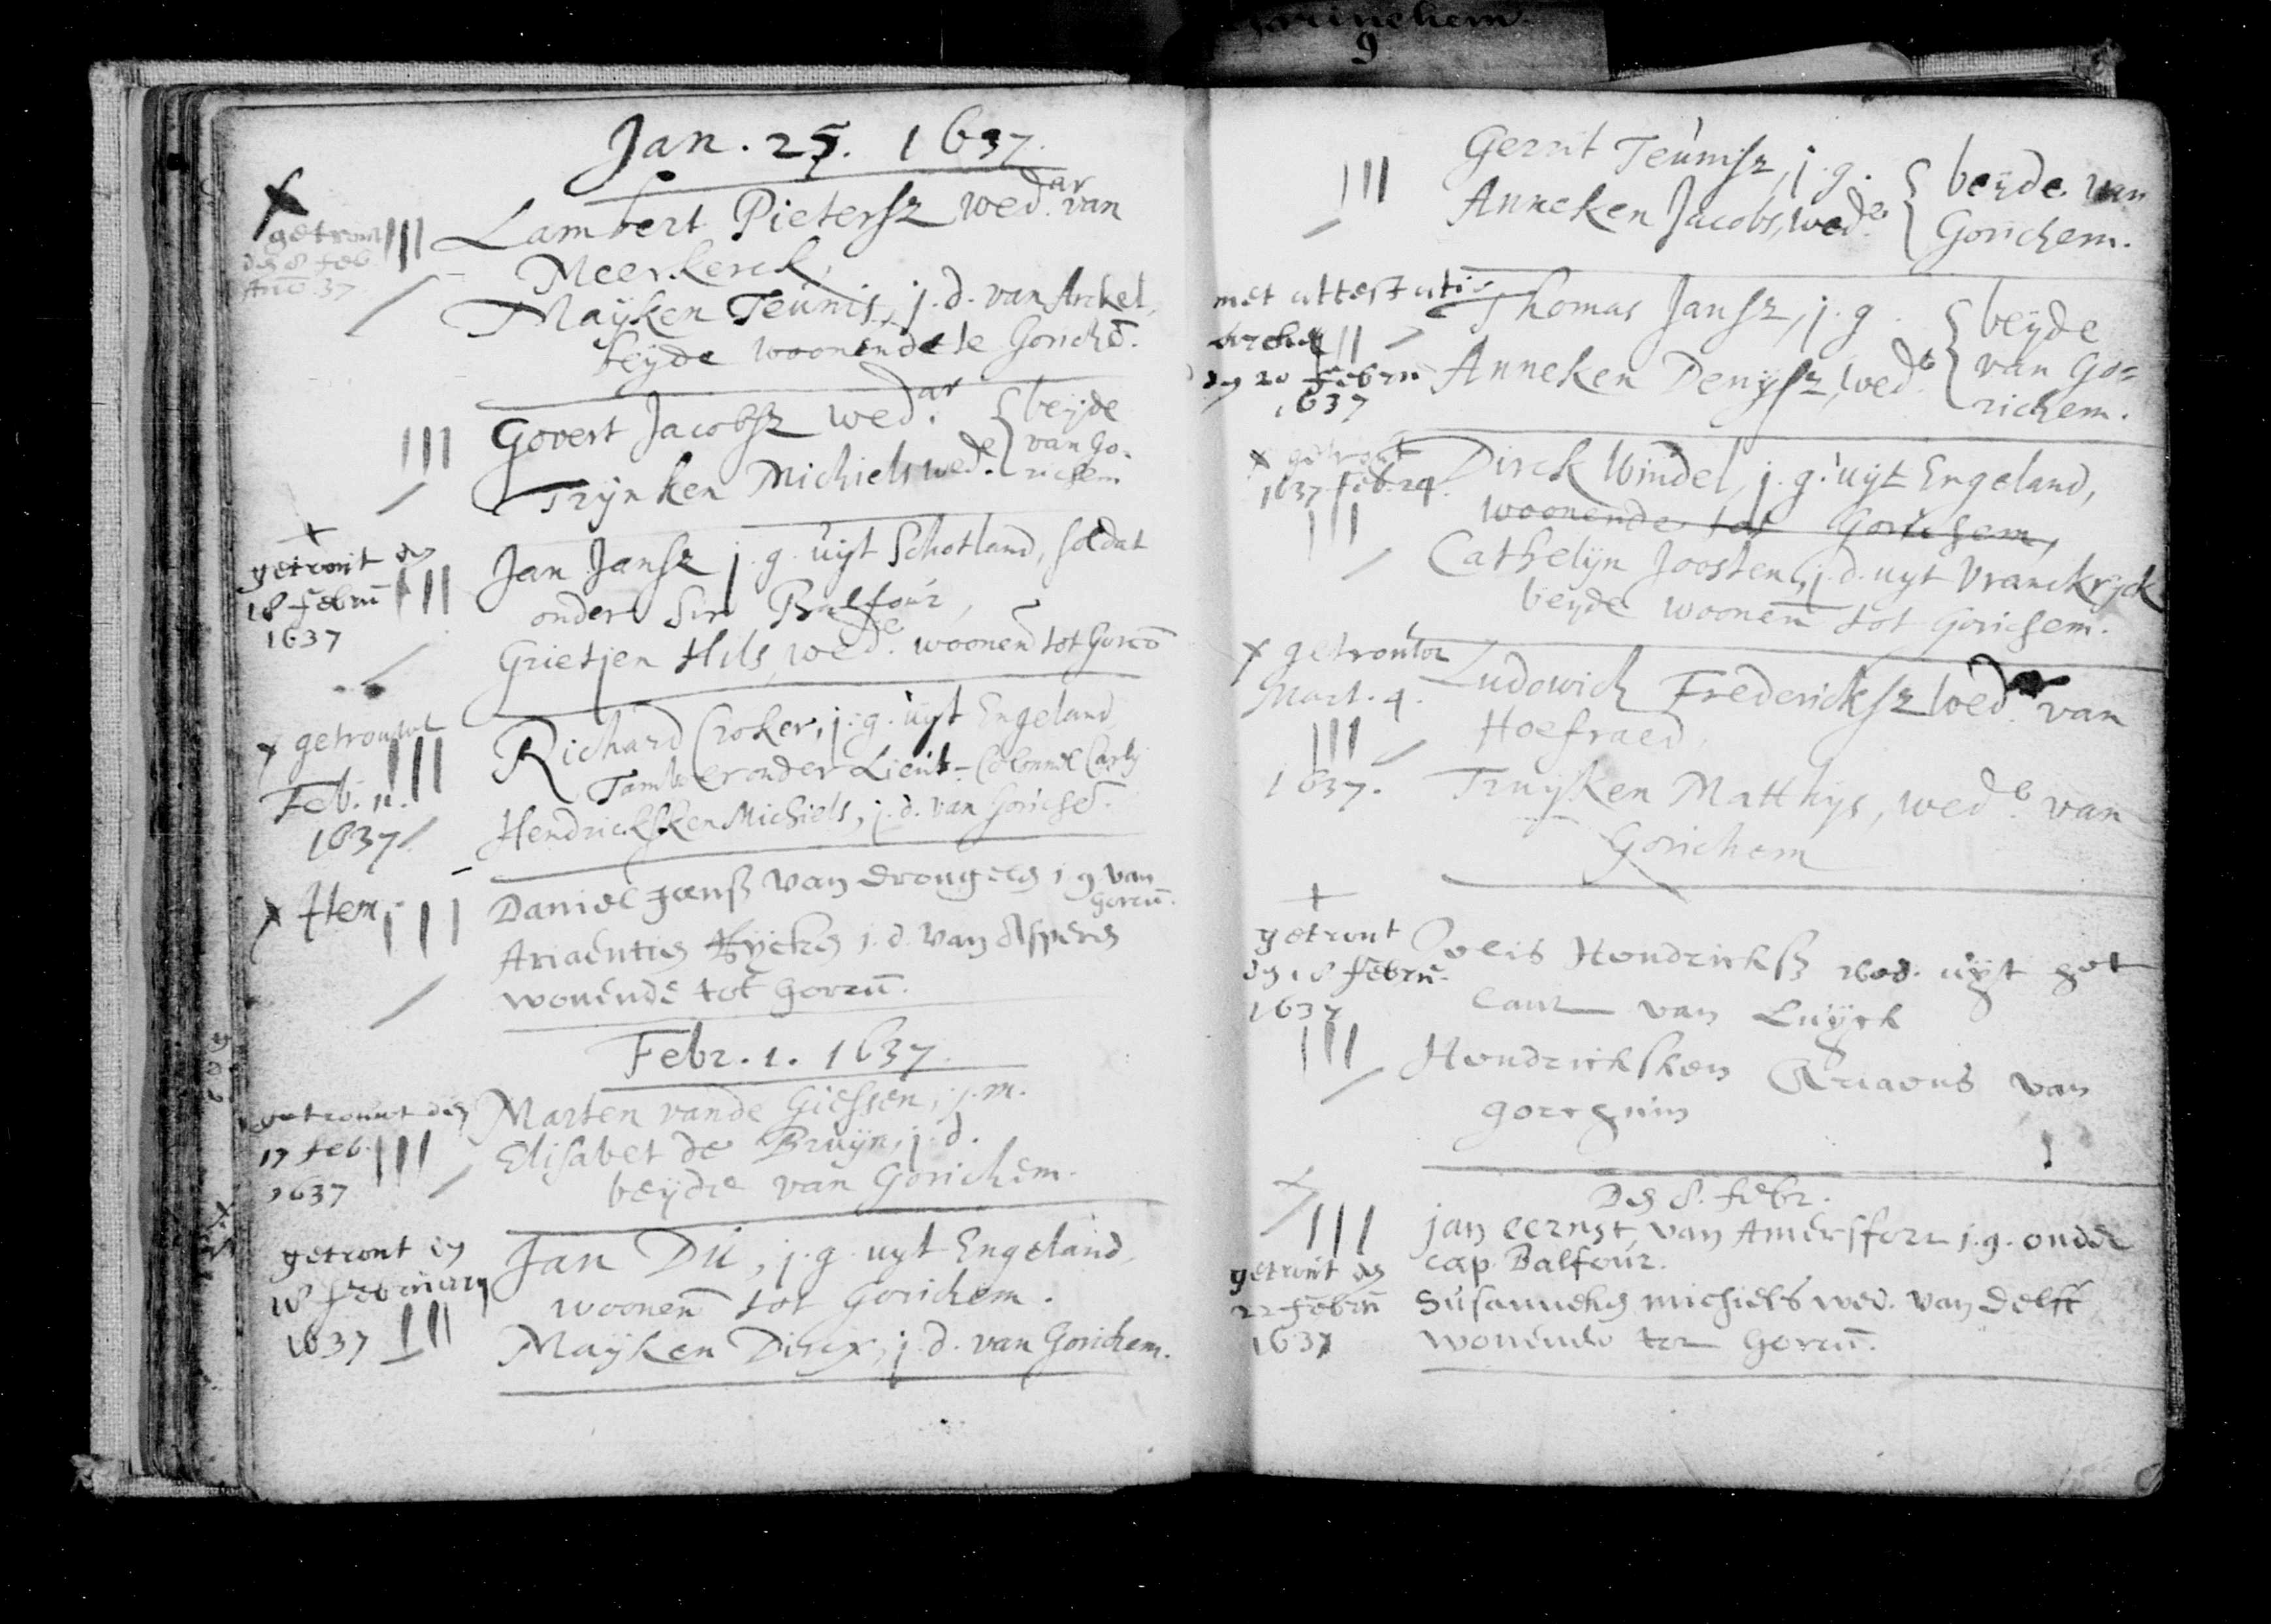 Gorinchem
9
Jan. 25. 1637.
getrout
den 8 feb
Ano 37
Lambert Pietersz wed.ar van
Meerkerck,
Mayken Teunis, j.d. van Arckel,
beyde woonende te Goriche̅.
Govert Jacobsz wed.ar
Trynken Michiels wed.e
beyde
van Go-
richem
getrout den
18 Febru
1637
Jan Jansz j.g. uyt Schotland, soldat
onder Sir Balfour,
Grietjen Hils, wed.e woonen̅ tot Gorco̅
getrouwt
Feb. 11.
1637
Richard Croker, j.g. uyt Engeland
Tamb.er onder Lieut-Colonnel Carly
Hendricksken Michiels, j.d. van Goriche̅.
Item
Daniel Jansz van Drongelen j.g. van
Gorcu̅.
Ariaentien j.d. van Asperen
wonende tot Gorcu̅.
Febr. 1. 1637.
getrouwt den
17 feb.
1637
Marten vande Giessen, j.m.
Elisabet de Bruyn, j.d.
beyde van Gorichem.
getrout den
18 February
1637
Jan Du, j.g. uyt Engeland,
woonen̅ tot Gorichem.
Mayken Dircx, j.d. van Gorichem.
Gerrit Teunisz, j.g.
Anneken Jacobs, wed.e
beyde van
Gorichem.
met attestatie
den 20 Febru
1637
Thomas Jansz, j.g.
Anneken Denysz, wed.e
beyde
van Go=
richem.
getrout
1637 Feb. 24.
Dirck Windel, j.g. uyt Engeland,
woonende tot Gorichem,
Cathelyn Joosten, j.d. uyt Vranckryck
beyde woonen̅ tot Gorichem.
getrout
Mart. 4.
1637.
Ludowich Fredericksz wed.ar van
Hoefraed,
Truyken Matthys, wed.e van
Gorichem
getrout
den 18 Febru.
1637
Hendricksz wed. uyt het
Lant van Luyck
Hendricksken Ariaens van
Gorchum
Den 8. Febr.
getrout den
22 Febru
1637
jan eernst, van Amersfort j.g. onder
cap. Balfour.
Susanneken michiels wed. van Delft
wonende tot Gorcu̅.